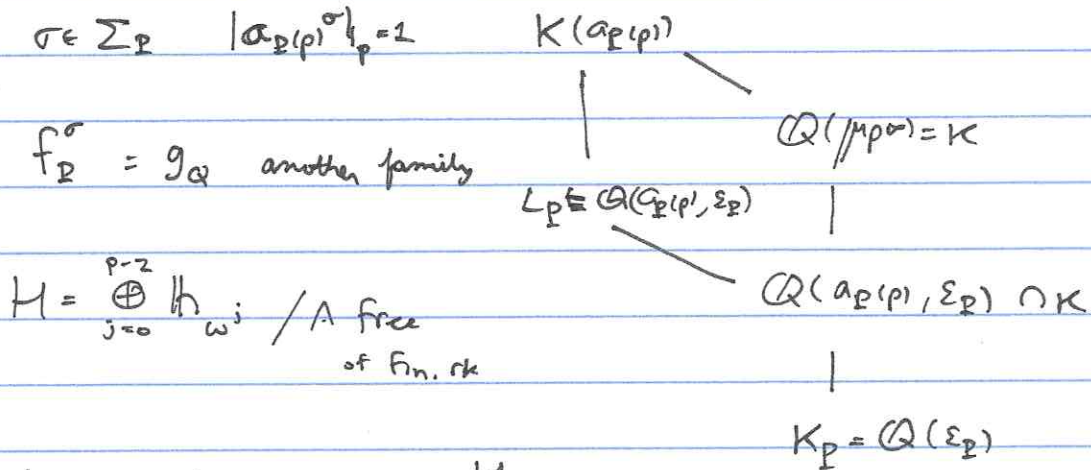 σ ∈ Σ_P |a_P(p)^σ|_p = 1 K(a_P(p))
Q(μ_{p^∞}) = K
f_P^σ = g_Q another family
L_P = Q(a_P(p), ε_P)
H = ⊕_{j=0}^{p-2} h_{ω^j} / Λ free
of fin. rk
Q(a_P(p), ε_P) ∩ K
K_P = Q(ε_P)